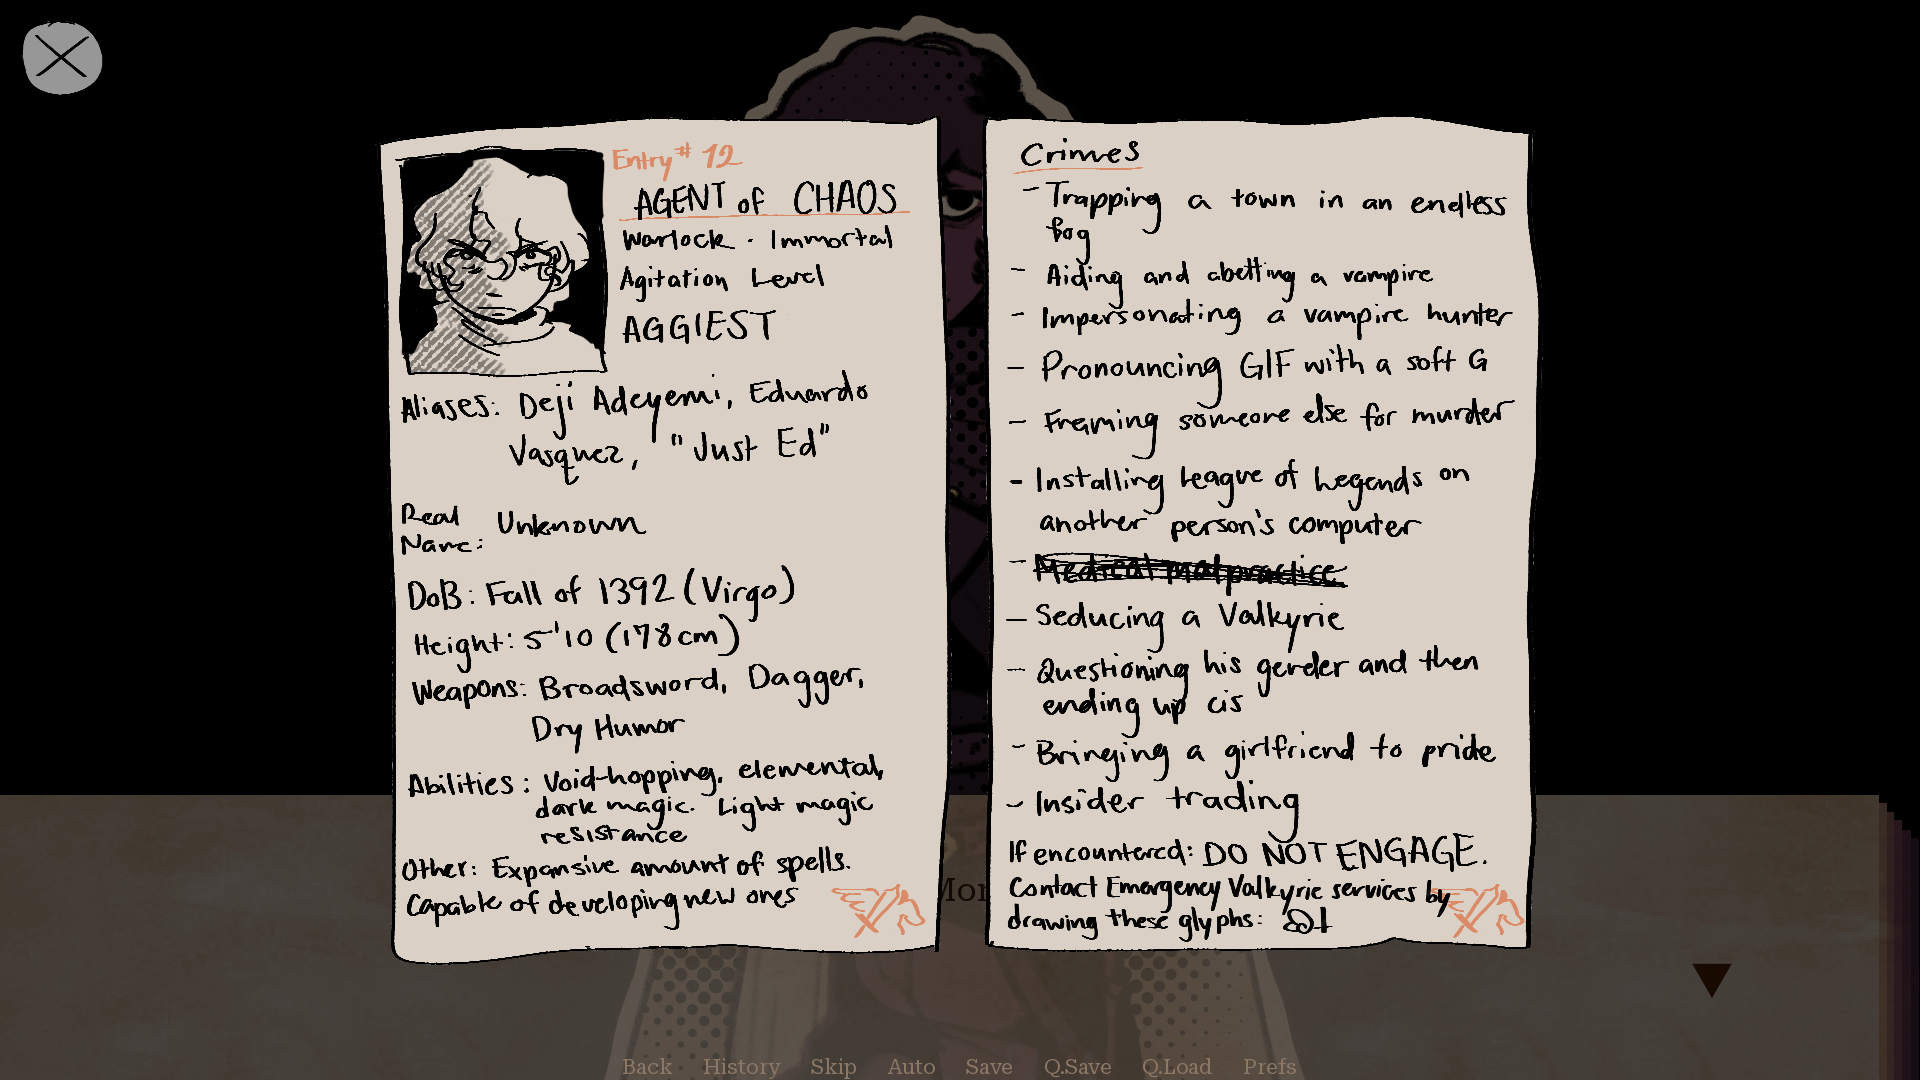 Entry # 12
AGENT of CHAOS
Warlock · Immortal
Agitation Level
AGGIEST
Aliases: Deji Adeyemi, Eduardo
Vasquez, "Just Ed"
Real
Name: Unknown
DoB: Fall of 1392 (Virgo)
Height: 5'10 (178cm)
Weapons: Broadsword, Dagger,
Dry Humor
Abilities: Void-hopping, elemental,
dark magic. Light magic
resistance
Other: Expansive amount of spells.
Capable of developing new ones
Crimes
- Trapping a town in an endless
fog
- Aiding and abetting a vampire
- Impersonating a vampire hunter
- Pronouncing GIF with a soft G
- Framing someone else for murder
- Installing League of Legends on
another person's computer
- Medical malpractice
- Seducing a Valkyrie
- Questioning his gender and then
ending up cis
- Bringing a girlfriend to pride
- Insider trading
If encountered: DO NOT ENGAGE.
Contact Emergency Valkyrie services by
drawing these glyphs:
Back History Skip Auto Save Q.Save Q.Load Prefs